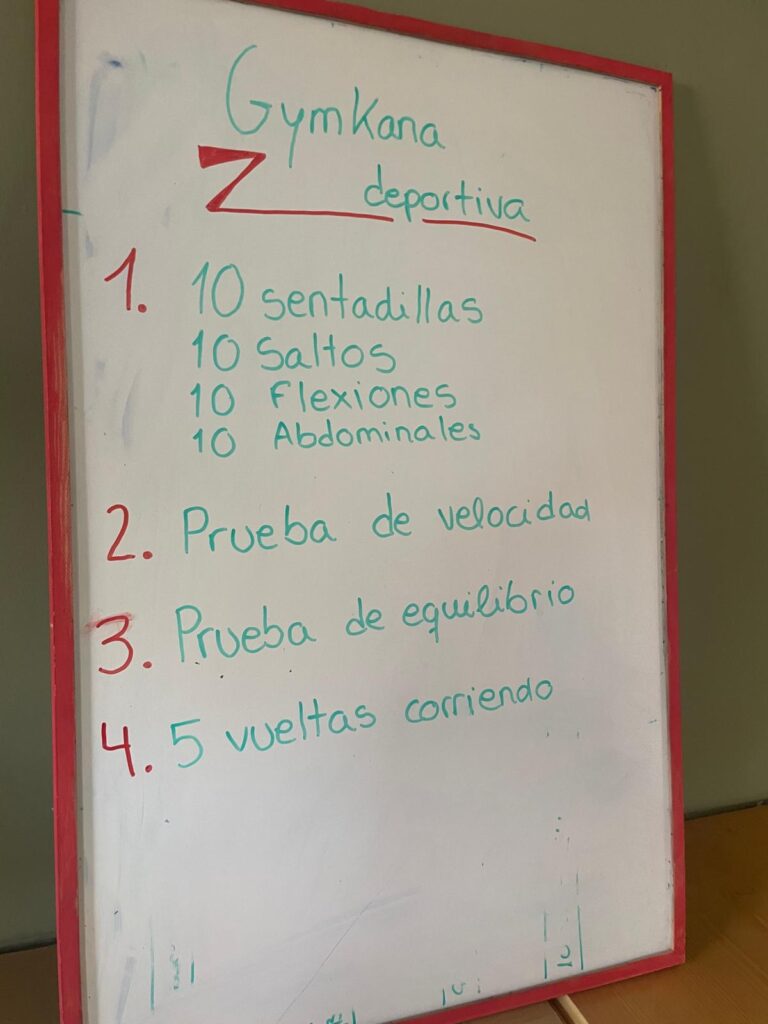 GymKana
deportiva
1. 10 sentadillas
10 Saltos
10 Flexiones
10 Abdominales
2. Prueba de velocidad
3. Prueba de equilibrio
4. 5 vueltas corriendo